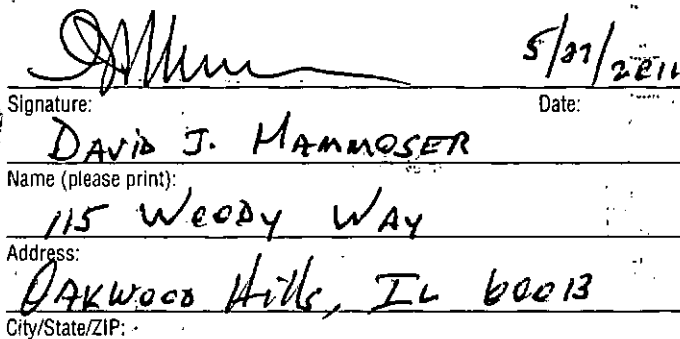 Signature: Date:
DAVID J. HAMMOSER
Name (please print):
115 WOODY WAY
Address:
OAKWOOD Hills, IL 60013
City/State/ZIP: